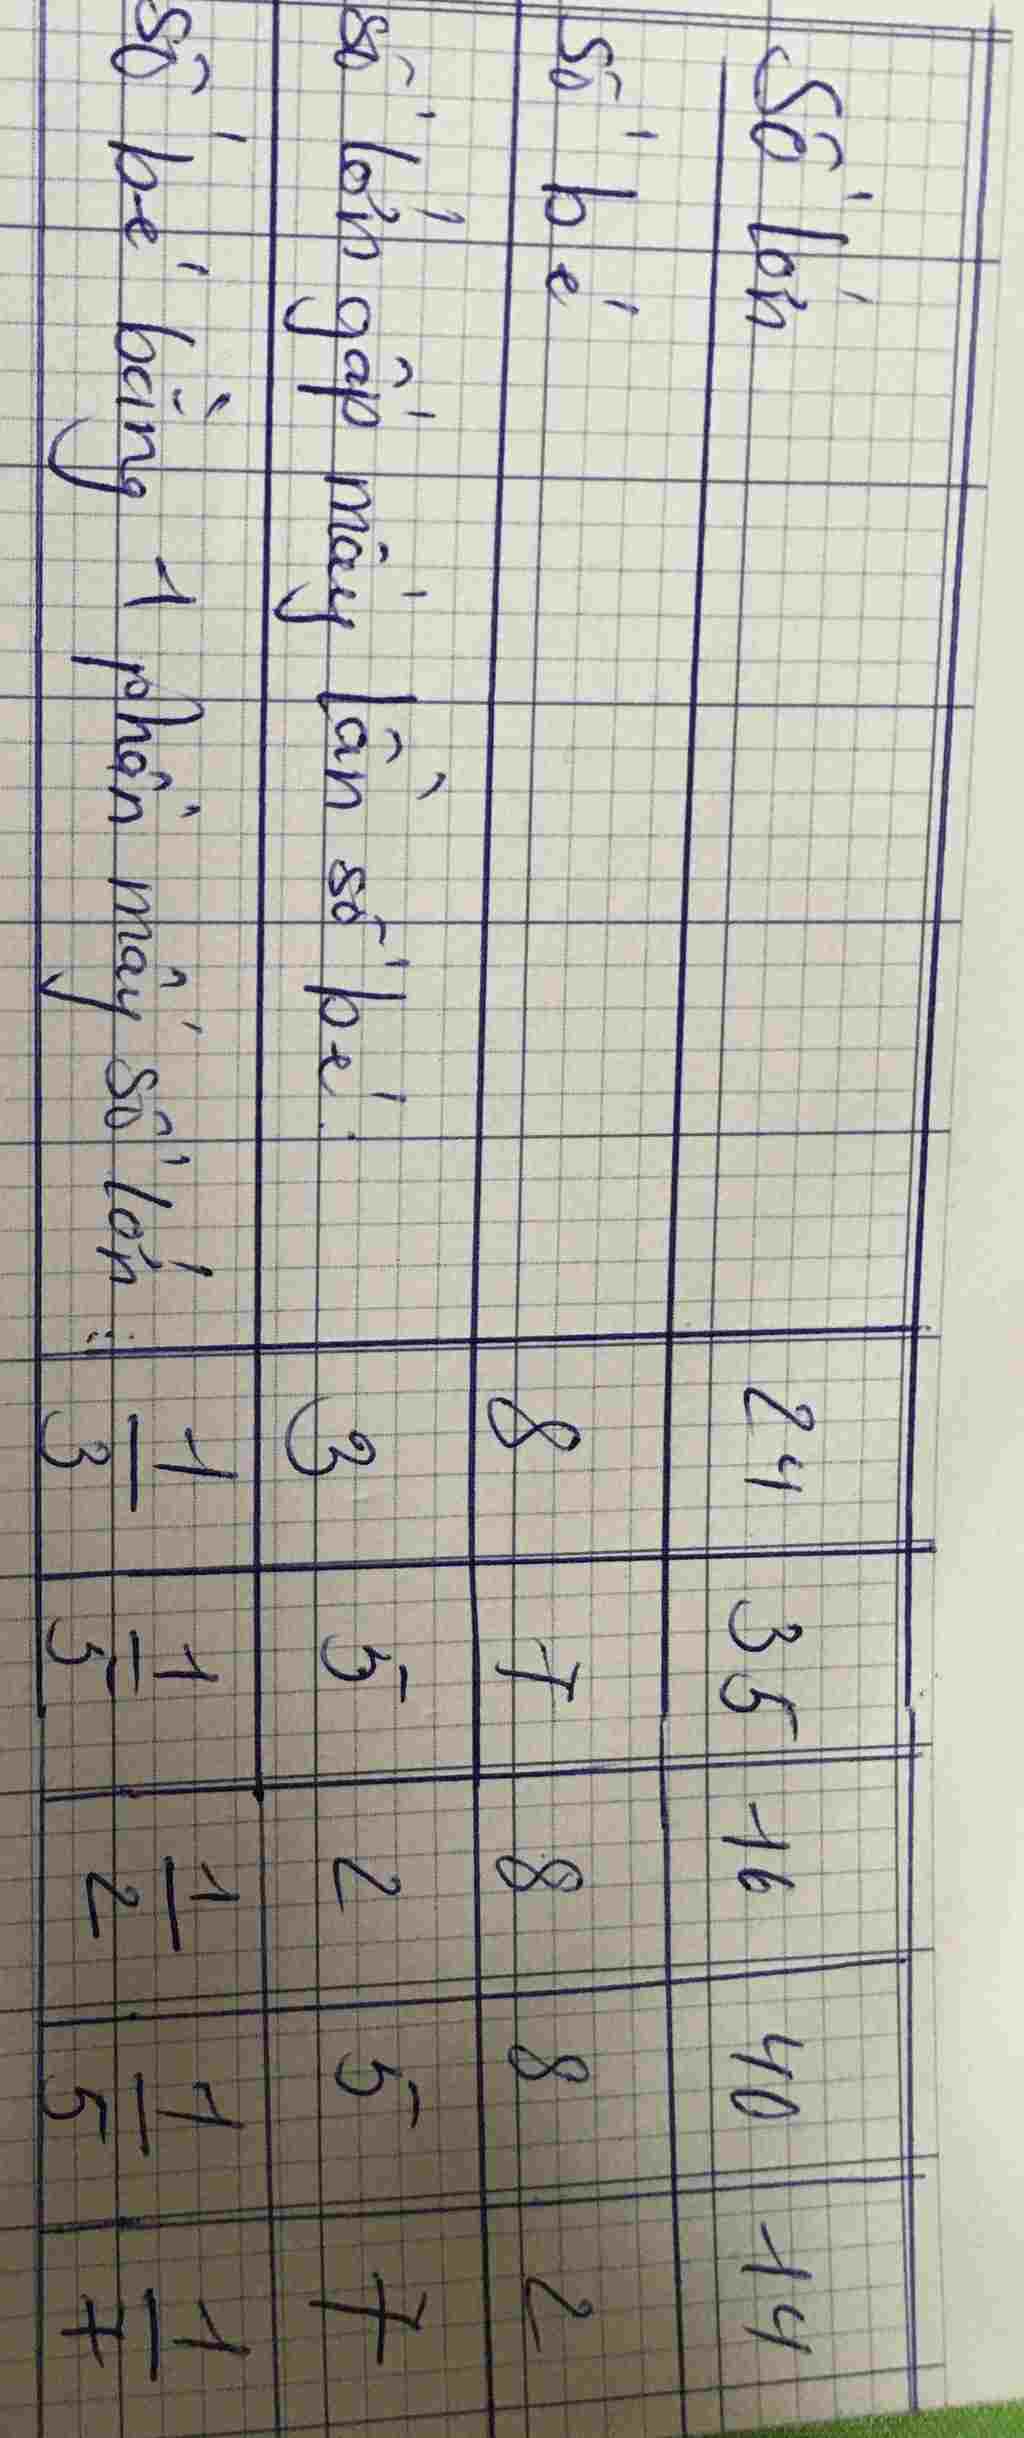 Số lớn 24 35 16 40 14
Số bé 8 7 8 8 2
Số lớn gấp mấy lần số bé 3 5 2 5 7
Số bé bằng 1 phần mấy số lớn: 1/3 1/5 1/2 1/5 1/7